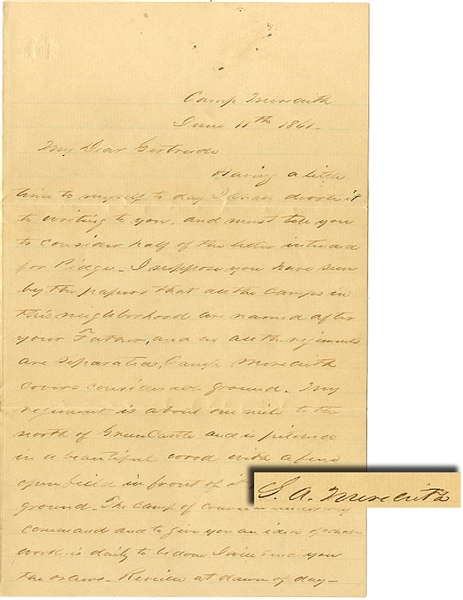 Camp Meredith
June 11th 1861.
My Dear Gertrude
Having a little
time to myself to day I shall devote it
to writing to you, and must tell you
to consider half of the letter intended
for Pidge. I suppose you have seen
by the papers that all the camps in
this neighborhood are named after
your Father, and as all the regiments
are separated, Camp Meredith
covers considerable ground. My
regiment is about one mile to the
north of GreenCastle and is
in a beautiful wood with a fine
open field in front of it
ground. The Camp of course my
command and to give you an idea of
work is daily to be done I will send you
the orders. Reveille at dawn of day—
S. A. Meredith